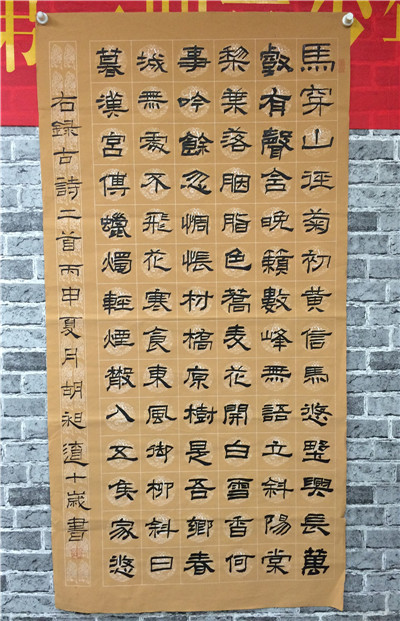 馬穿山徑菊初黄信馬悠野興長萬
壑有聲含晚籟數峰無語立斜陽棠
梨葉落胭脂色蕎麦花開白雪香何
事吟餘忽惆悵村橋原樹是吾鄉春
城無處不飛花寒食東風御柳斜日
暮漢宮傳蠟燭輕煙散入五侯家悠
右録古詩二首丙申夏月胡昶十歲書